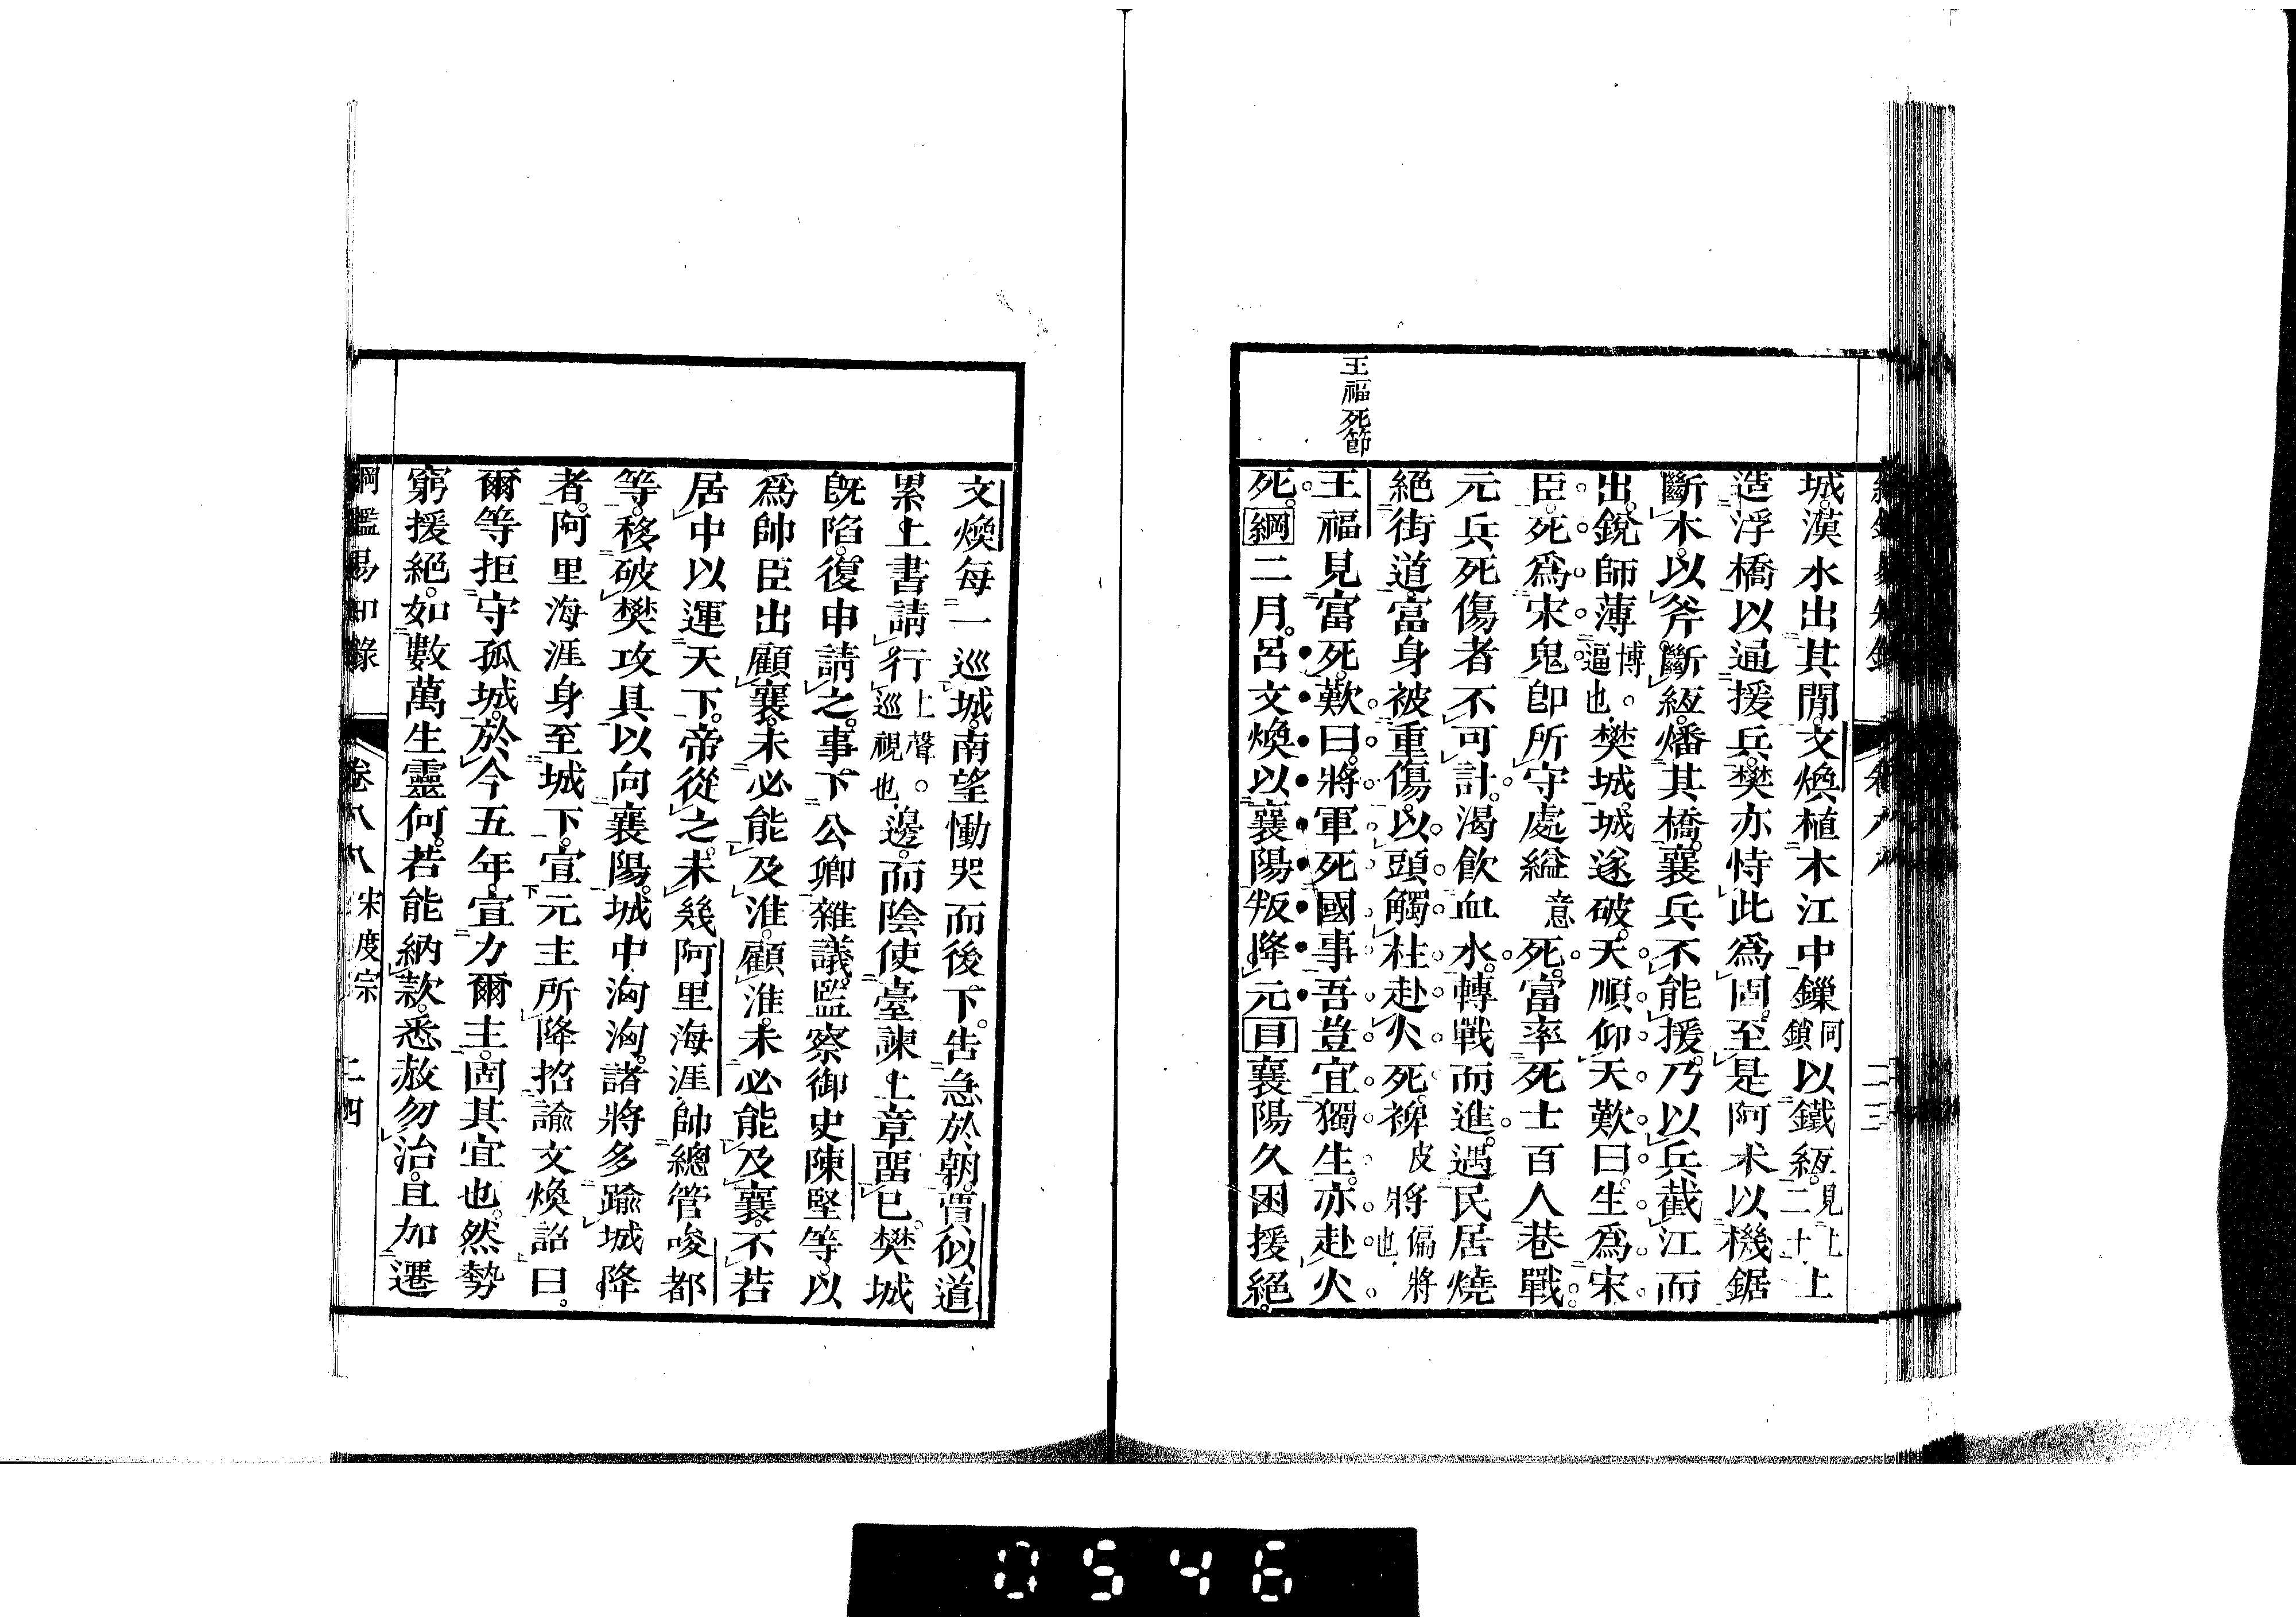 王福死節
城。漢水出其間。文煥植木江中鏁同鎖以鐵絙。見上二十上
造浮橋以通援兵。樊亦恃此爲固。至是阿朮以機鋸
斷木。以斧斷絙。燔其橋。襄兵不能援。乃以兵截江而
出。銳師薄博。逼也。樊城。城遂破。天順仰天歎曰。生爲宋
臣。死爲宋鬼。卽所守處縊意死。富率死士百人巷戰。
元兵死傷者不可計。渴飮血水。轉戰而進。遇民居燒
絕街道。富身被重傷。以頭觸柱赴火死。裨皮將偏將也。
王福見富死。歎曰。將軍死國事。吾豈宜獨生。亦赴火
死。綱二月。呂文煥以襄陽叛降元目襄陽久困援絕。
二三
文煥每一巡城。南望慟哭而後下。告急於朝。賈似道
累上書請行上聲。巡視也。邊。而陰使臺諫上章畱已。樊城
旣陷。復申請之。事下公卿雜議。監察御史陳堅等。以
爲帥臣出顧襄。未必能及淮。顧淮。未必能及襄。不若
居中以運天下。帝從之。未幾阿里海涯帥總管唆都
等。移破樊攻具以向襄陽。城中洶洶。諸將多踰城降
者。阿里海涯身至城下。宣元主所降招諭文煥詔曰。
爾等拒守孤城。於今五年。宣力爾主。固其宜也。然勢
窮援絕。如數萬生靈何。若能納款。悉赦勿治。且加遷
綱鑑易知錄 卷八八 宋度宗 二四
0546